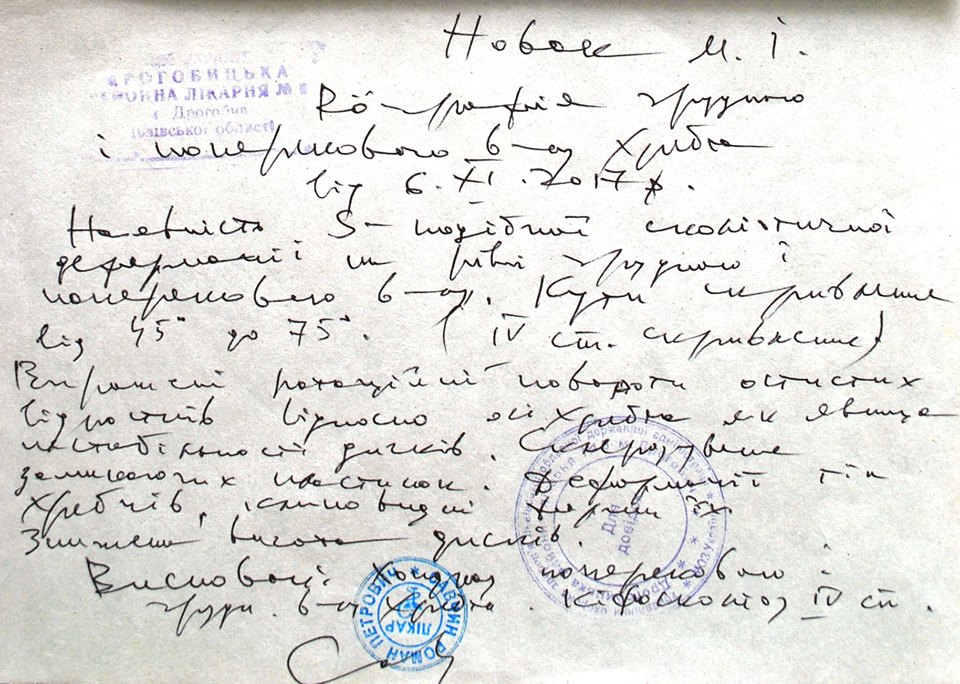 Новак М. І.
ДРОГОБИЦЬКА
РАЙОННА ЛІКАРНЯ №
м. Дрогобич
Львівської області
Rö-графія грудного
і поперекового в-лу хребта
від 6.XI.2017р.
Наявність S-подібної сколіотичної
деформації на рівні грудного і
поперекового в-лу. Кути скривлення
від 45° до 75°. (IV ст. скривлення)
Виражені ротаційні повороти остистих
відростків відносно осі хребта як явища
нестабільності дисків. Склерозування
замикаючих пластинок. Деформації тіл
хребців, клиновидні форми їх.
Знижена висота дисків.
Висновок: Хондроз поперекового і
груд. в-лу хребта. Кіфосколіоз IV ст.
ЛІКАР
САВРИН РОМАН ПЕТРОВИЧ
Для
довідок